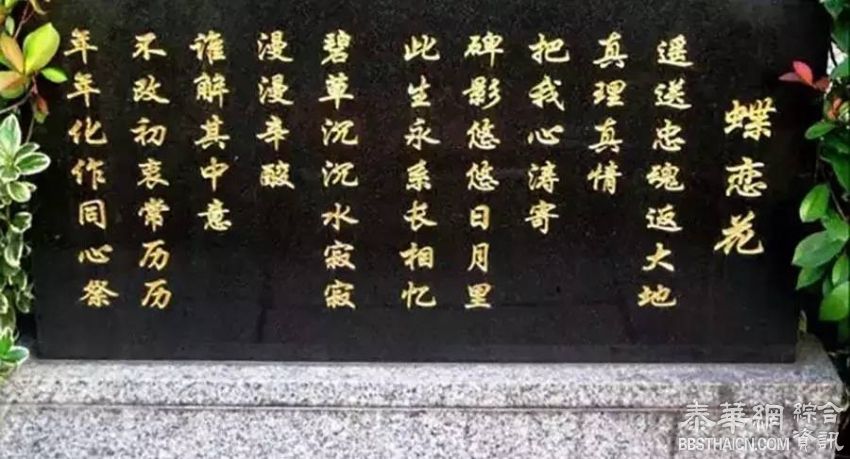 蝶恋花
遥送忠魂返大地
真理真情
把我心涛寄
碑影悠悠日月里
此生永系长相忆
碧草沉沉水寂寂
漫漫辛酸
谁解其中意
不改初衷常历历
年年化作同心祭
泰華網 綜合資訊
BBSTHAICN.COM